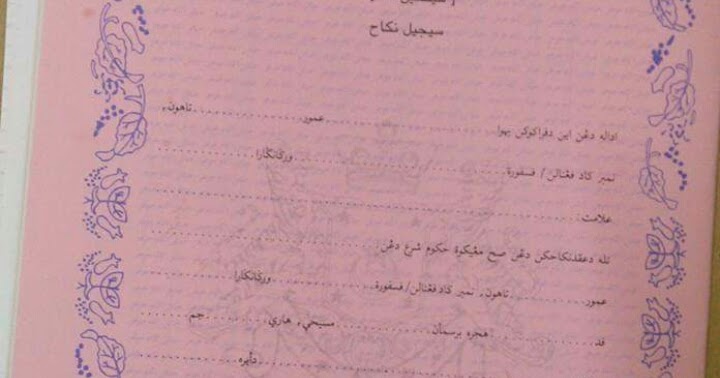 سيجيل نكاح
اداله دڠن اين دڤراكوكن بهوا....................عمور..........تاهون,
نمبر كاد ڤڠنالن/ ڤسڤورة....................ورڬانڬارا....................
علامت:....................
تله دعقدنكاحكن دڠن صح مڠيكوة حكوم شرع دڠن:....................
عمور..........تاهون, نمبر كاد ڤڠنالن/ ڤسڤورة..........ورڬانڬارا..........
ڤد..........هجره برسمان..........مسيحي, هاري..........جم..........
..........دأيره..........